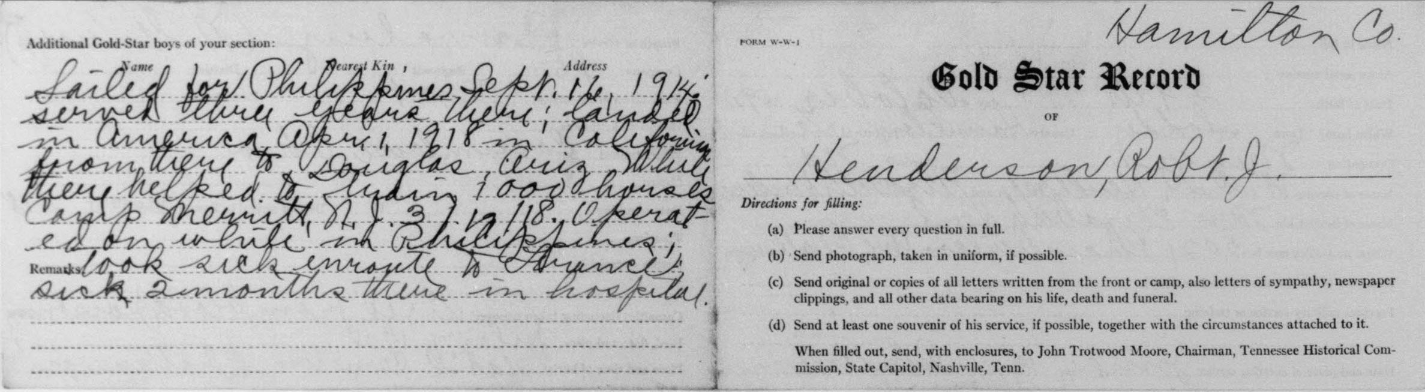 Additional Gold-Star boys of your section:
Name Nearest Kin Address
Sailed for Philippines, Sept. 16, 1914.
served three years there; landed
in America, Apr. 1, 1918 in California
from there to Douglas, Ariz. While
there helped to train 1000 horses
Camp Merritt, N.J. 3/12/18. Operat-
ed on while in Philippines;
Remarks: took sick enroute to France;
sick 2 months there in hospital.
FORM W-W-1
Hamilton Co.
Gold Star Record
OF
Henderson, Robt. J.
Directions for filling:
(a) Please answer every question in full.
(b) Send photograph, taken in uniform, if possible.
(c) Send original or copies of all letters written from the front or camp, also letters of sympathy, newspaper
clippings, and all other data bearing on his life, death and funeral.
(d) Send at least one souvenir of his service, if possible, together with the circumstances attached to it.
When filled out, send, with enclosures, to John Trotwood Moore, Chairman, Tennessee Historical Com-
mission, State Capitol, Nashville, Tenn.